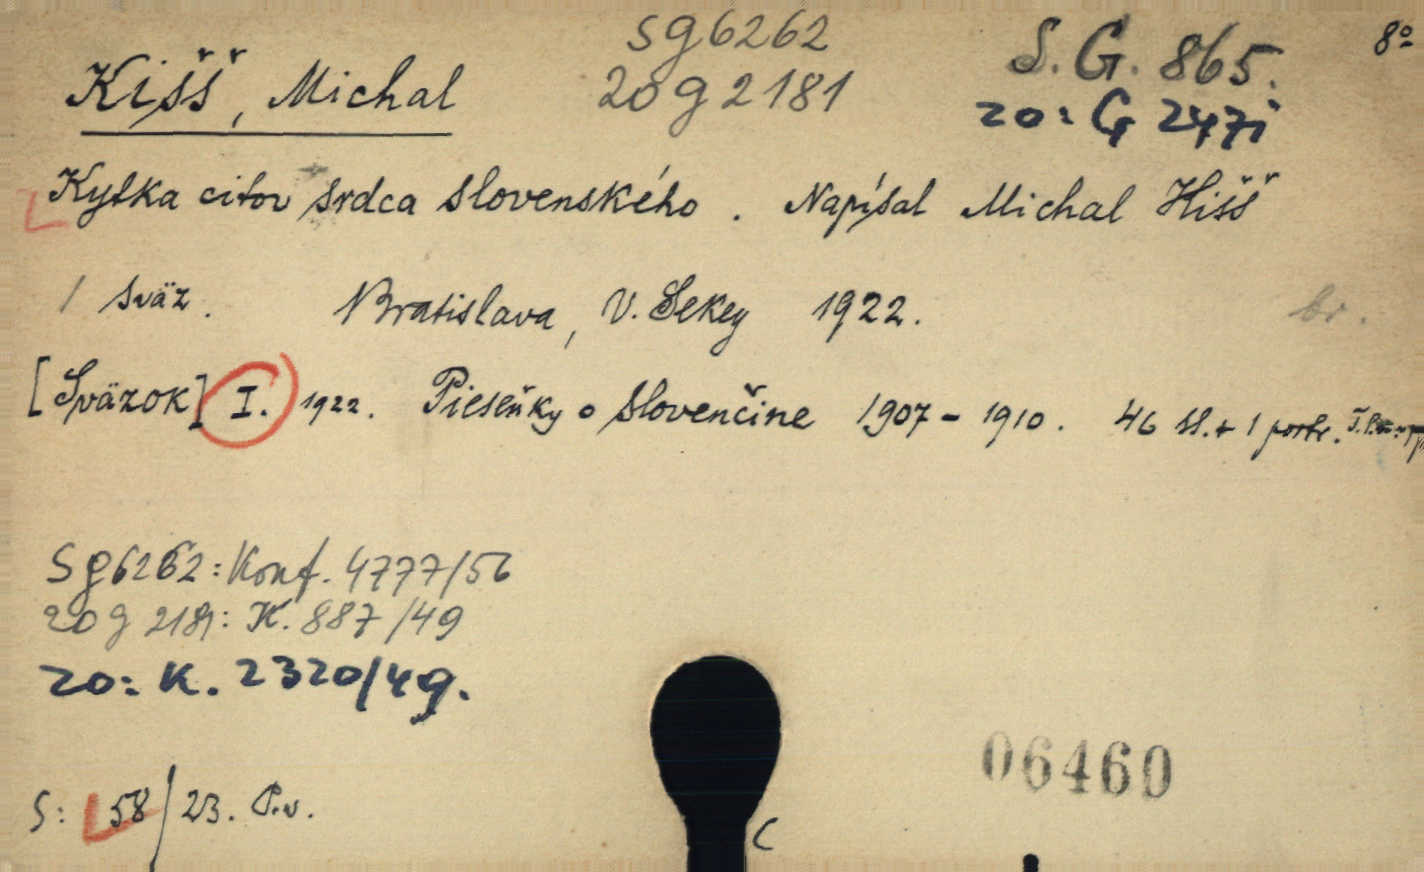 SG6262
S.G. 865.
8º
Kišš, Michal
20g2181
20: G 247i
Kytka citov srdca slovenského. Napísal Michal Kišš
1 sväz. Bratislava, V. Sekey 1922. br.
[Sväzok] I. 1922. Pieseňky o slovenčine 1907-1910. 46 sl. + 1 portr.
Sg6262: Konf. 4777/56
20g 2181: K. 887/49
20: K. 2320/49.
06460
S: 58/23. P.v.
C